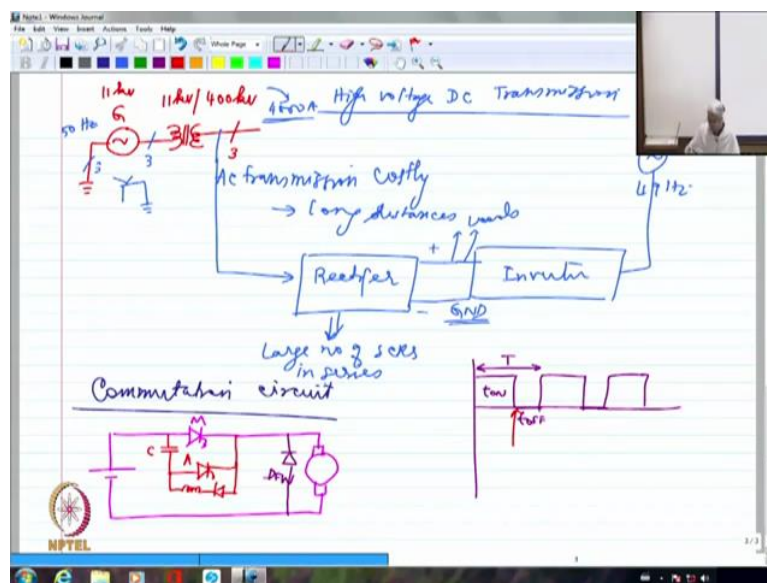 Note1 - Windows Journal
File Edit View Insert Actions Tools Help
Whole Page
B I
11kv 11kv/400kv 4000A High voltage DC Transmission
G
50 Hz
3 3 3
AC transmission costly
→ long distances
49 Hz
+
Rectifier Inverter
- GND
Large no of SCRs
in series
Commutation circuit
T
ton
toff
M
C A
NPTEL
3/3